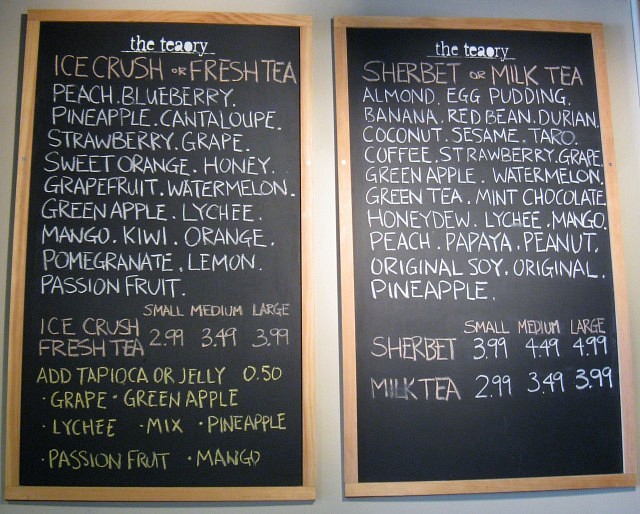 the teaory
ICE CRUSH OR FRESH TEA
PEACH. BLUEBERRY.
PINEAPPLE. CANTALOUPE.
STRAWBERRY. GRAPE.
SWEET ORANGE. HONEY.
GRAPEFRUIT. WATERMELON.
GREEN APPLE. LYCHEE.
MANGO. KIWI. ORANGE.
POMEGRANATE. LEMON.
PASSION FRUIT.
SMALL MEDIUM LARGE
ICE CRUSH
FRESH TEA 2.99 3.49 3.99
ADD TAPIOCA OR JELLY 0.50
· GRAPE · GREEN APPLE
· LYCHEE · MIX · PINEAPPLE
· PASSION FRUIT · MANGO
the teaory
SHERBET OR MILK TEA
ALMOND. EGG PUDDING.
BANANA. RED BEAN. DURIAN.
COCONUT. SESAME. TARO.
COFFEE. STRAWBERRY. GRAPE.
GREEN APPLE. WATERMELON.
GREEN TEA. MINT CHOCOLATE.
HONEYDEW. LYCHEE. MANGO.
PEACH. PAPAYA. PEANUT.
ORIGINAL SOY. ORIGINAL.
PINEAPPLE.
SMALL MEDIUM LARGE
SHERBET 3.99 4.49 4.99
MILK TEA 2.99 3.49 3.99